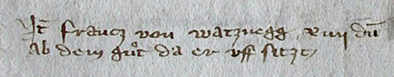 It̄ francz von watznegg xviii dn̄
Ab dem guͦt da er vff sitzt